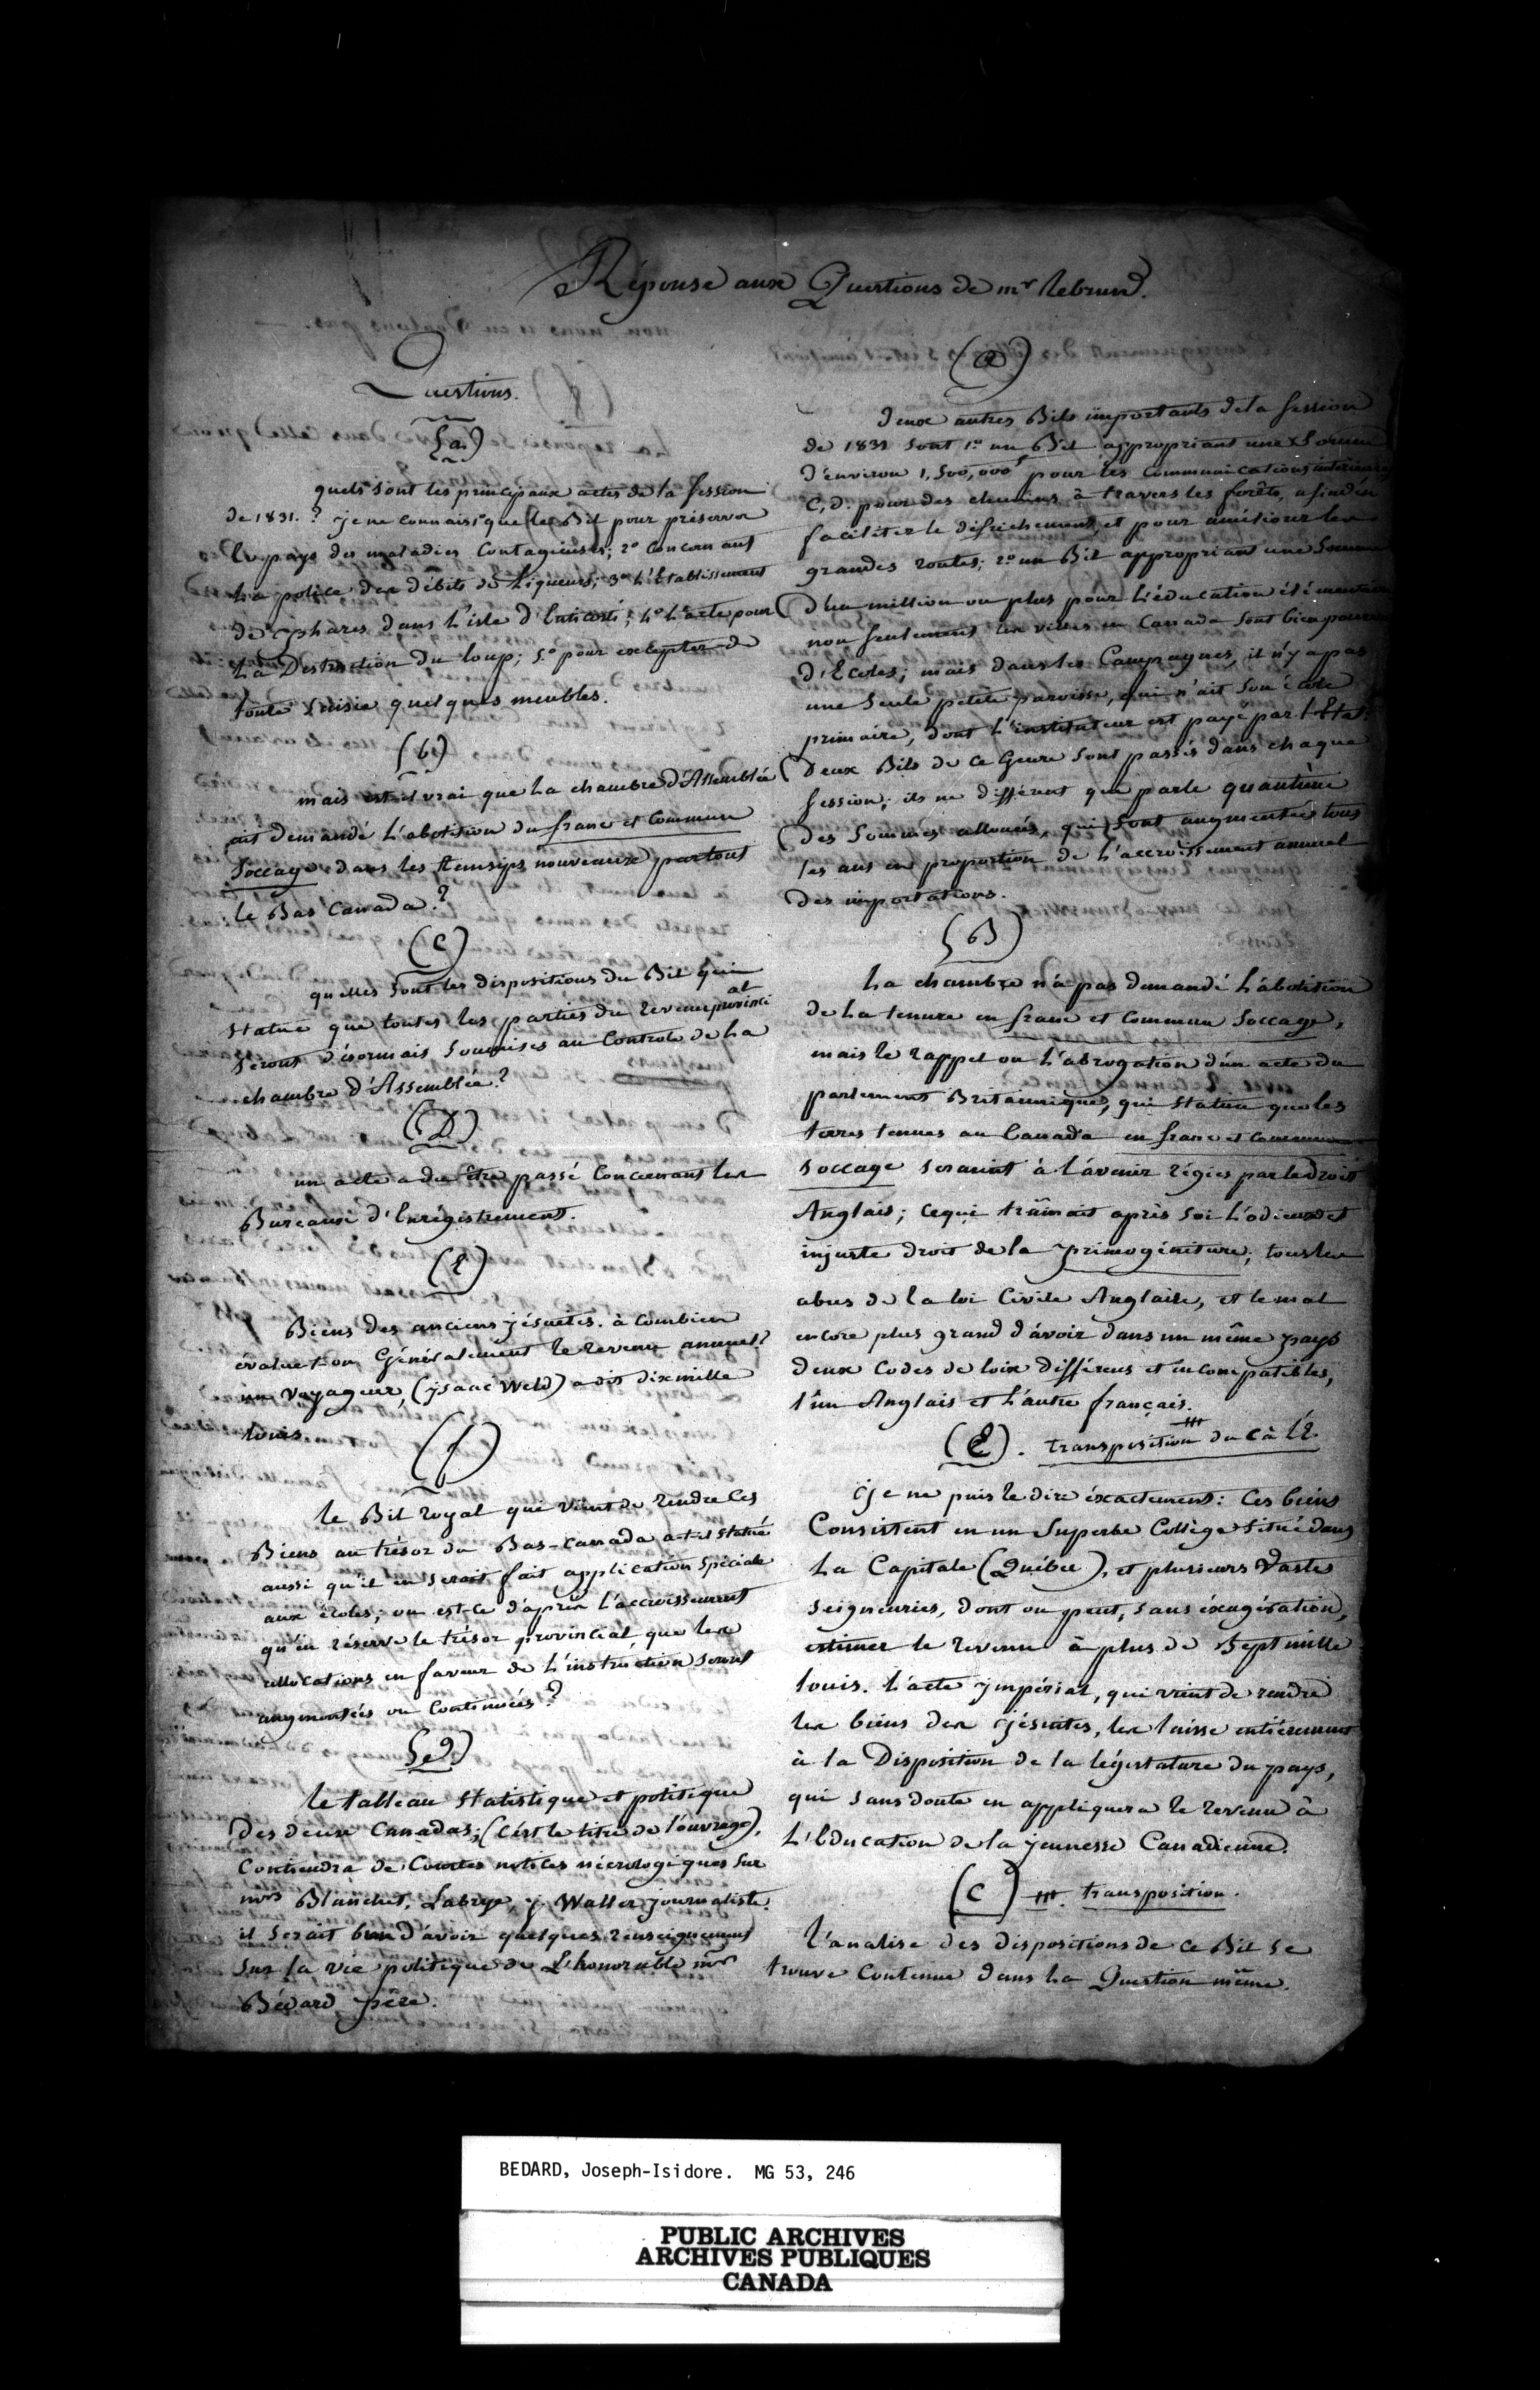 Réponse aux Questions de mr lebrund.
Questions.
(a)
quels sont les principaux actes de la Session
de 1831. ? je ne connais que le Bil pour préserver
le pays des maladies Contagieuses; 2º Concernant
la police des débits de Liqueurs; 3º L'Etablissement
de phares dans l'isle d'Anticosti; 4º L'acte pour
La Destruction du loup; 5º pour excepter de
toute Saisie quelques meubles.
(b)
mais est-il vrai que La chambre d'Assemblée
ait demandé L'abolition du franc et Commun
Soccage dans les Townsips nouveaux partout
le Bas Canada ?
(C)
quelles Sont les dispositions du Bil qui
Statue que toutes les parties du revenu provincial
Seront désormais Soumises au Controle de La
chambre d'Assemblée ?
(D)
un acte a du être passé Concernant les
Bureaux d'Enrégistrement.
(E)
Biens des anciens jésuites. à combien
évalue-t-on Généralement le revenu annuel ?
un Voyageur, (jsaac Weld) a dit dix mille
louis.
(f)
le Bil royal qui vient de rendre Ces
Biens au trésor du Bas-Canada a-t-il Statué
aussi qu'il en Serait fait application Spéciale
aux écoles; ou est-ce d'après l'accroissement
qu'en réserve le trésor provincial que les
allocations en faveur de L'instruction Seront
augmentées ou Continuées ?
(g)
le tableau Statistique et politique
des deux Canadas; (C'est le titre de l'ouvrage),
Contiendra de Courtes notices nécrologiques sur
mrs Blanchet, Labrye, j. Waller journaliste.
il Serait bon d'avoir quelques renseignemens
Sur la vie politique de L'honorable mr
Bédard père.
(a)
Deux autres Bils importants de la Session
de 1831 Sont 1º un Bil appropriant une Somme
d'environ 1,500,000f pour les Communications intérieures
C, d. pour des chemins à travers les forêts, afin d'en
faciliter le défrichement, et pour améliorer les
grandes routes; 2º un Bil appropriant une Somme
d'un million ou plus pour L'éducation élémentaire
non Seulement les villes en Canada Sont bien pourvues
d'Ecoles; mais dans les Campagnes, il n'y a pas
une Seule petite paroisse, qui n'ait Son école
primaire, dont L'instituteur est payé par l'Etat.
Deux Bils de Ce Genre Sont passés dans chaque
Session; ils ne diffèrent que par le quantùm
des Sommes allouées, qui Sont augmentées tous
les ans en proportion de L'accroissement annuel
des importations.
(B)
La chambre n'a pas demandé L'abolition
de La tenure en franc et Commun Soccage,
mais le rappel ou L'abrogation d'un acte du
parlement Britannique, qui Statue que les
terres tenues au Canada en franc et Commun
Soccage Seraient à l'avenir régies par le droit
Anglais; ce qui traînait après Soi L'odieux et
injuste droit de la primogéniture; tous les
abus de la loi Civile Anglaise, et le mal
encore plus grand d'avoir dans un même pays
deux Codes de loix différens et incompatibles,
l'un Anglais et L'autre français.
(E). transposition du C à L'E.
Je ne puis le dire éxactement: Ces biens
Consistent en un Superbe Collège Situé dans
La Capitale (Québec), et plusieurs Vastes
Seigneuries, dont on peut, Sans éxagération,
estimer le revenu à plus de Sept mille
louis. L'acte jmpérial, qui vient de rendre
les biens des jésuites, les laisse entièrement
à la Disposition de la législature du pays,
qui Sans doute en appliquera le revenu à
L'Education de la jeunesse Canadienne.
(C) transposition.
L'analise des dispositions de ce Bil Se
trouve Contenue dans La Question même.
BEDARD, Joseph-Isidore. MG 53, 246
PUBLIC ARCHIVES
ARCHIVES PUBLIQUES
CANADA